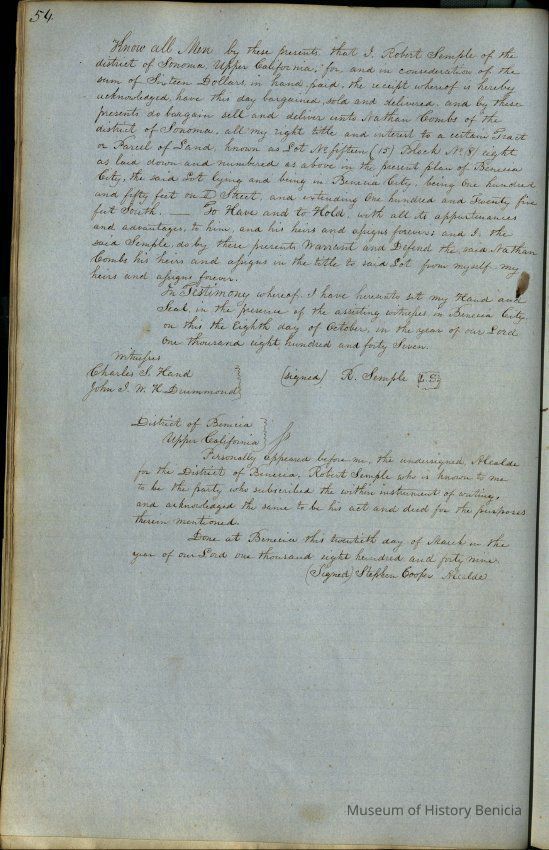 54.
Know all Men by these presents that I. Robert Semple of the
district of Sonoma, Upper California, for and in consideration of the
sum of Sixteen Dollars, in hand paid, the receipt whereof is hereby
acknowledged, have this day bargained, sold and delivered, and by these
presents do bargain sell and deliver unto Nathan Combs of the
district of Sonoma, all my right title and interest to a certain Tract
or Parcel of Land, known as Lot No fifteen (15) Block No (8) eight
as laid down and numbered as above in the present plan of Benecia
City, the said Lot lying and being in Benecia City, being One hundred
and fifty feet on Street, and extending One hundred and Twenty five
feet South. — To Have and to Hold, with all its appurtenances
and advantages, to him, and his heirs and assigns forever; and I. the
said Semple, do by these presents Warrant and Defend the said Nathan
Combs his heirs and assigns in the title to said Lot from myself, my
heirs and assigns forever.
In Testimony whereof I have hereunto set my Hand and
Seal, in the presence of the assisting witnesses in Benecia City
on this the Eighth day of October, in the year of our Lord
One thousand eight hundred and forty Seven.
Witnesses
Charles S. Hand
(signed) R. Semple L.S.
John I. W. H. Drummond
District of Benicia
Upper California
Personally appeared before me, the undersigned, Alcalde
for the District of Benecia, Robert Semple who is known to me
to be the party who subscribed the within instrument of writing,
and acknowledged the same to be his act and deed for the purposes
therein mentioned.
Done at Benecia this twentieth day of March in the
year of our Lord one thousand eight hundred and forty nine.
(Signed) Stephen Cooper Alcalde
Museum of History Benicia